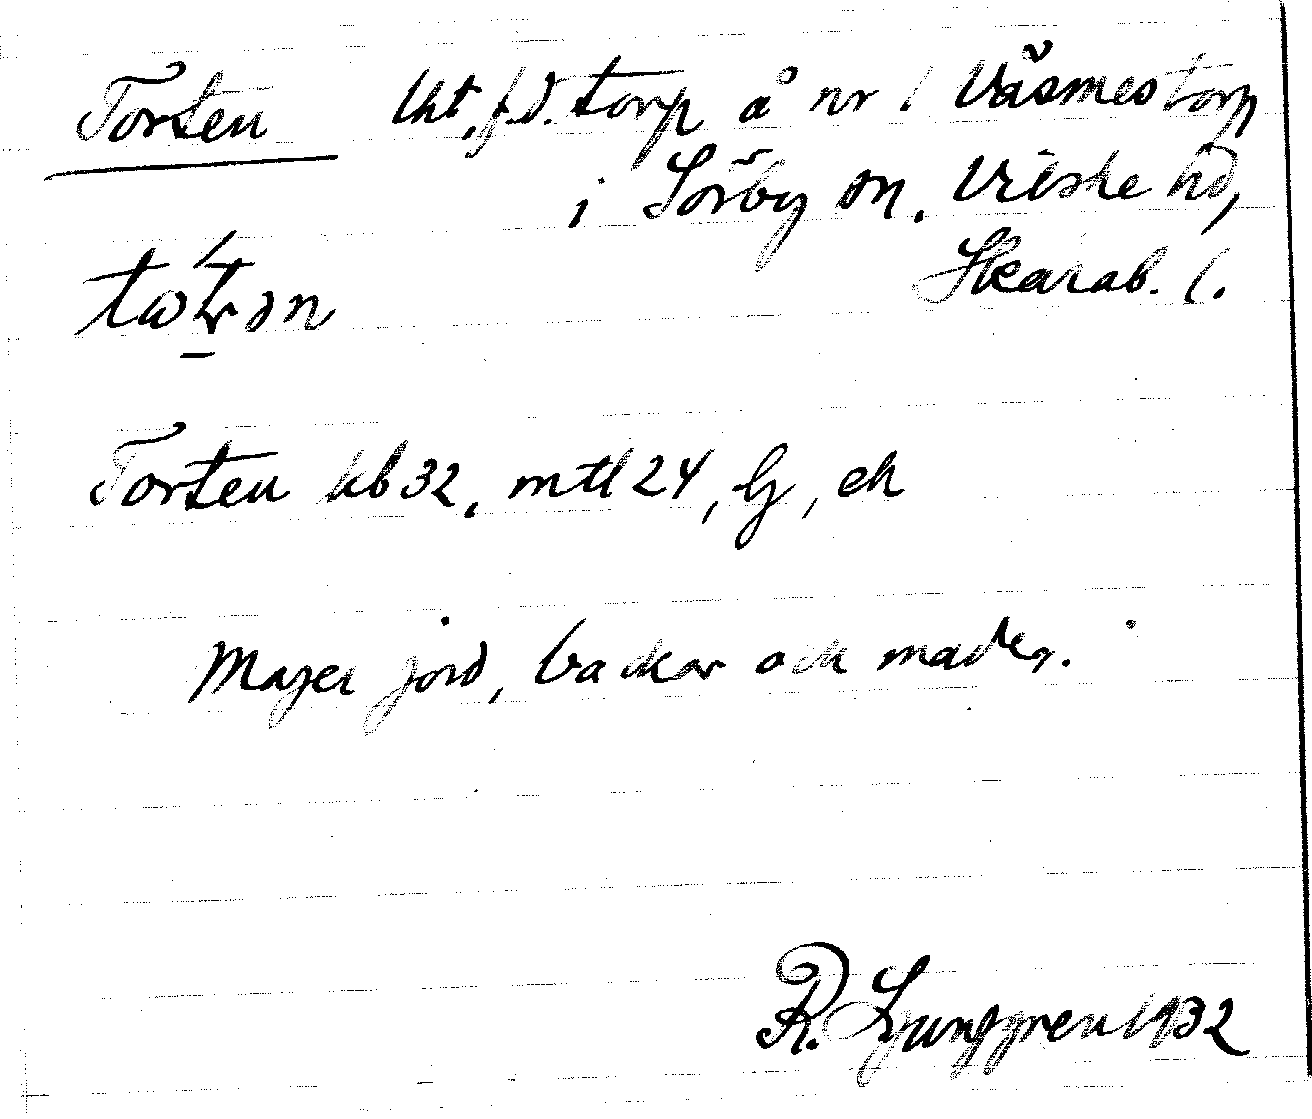 Torsten lht, f.d. torp å nr 1 Väsmestorp
i Sörby sn, Vilske hd,
Skarab. l.
Torsten kb 32, mtl 24, lj, ek
Mager jord, backar och mader.
R. Ljunggren 1932